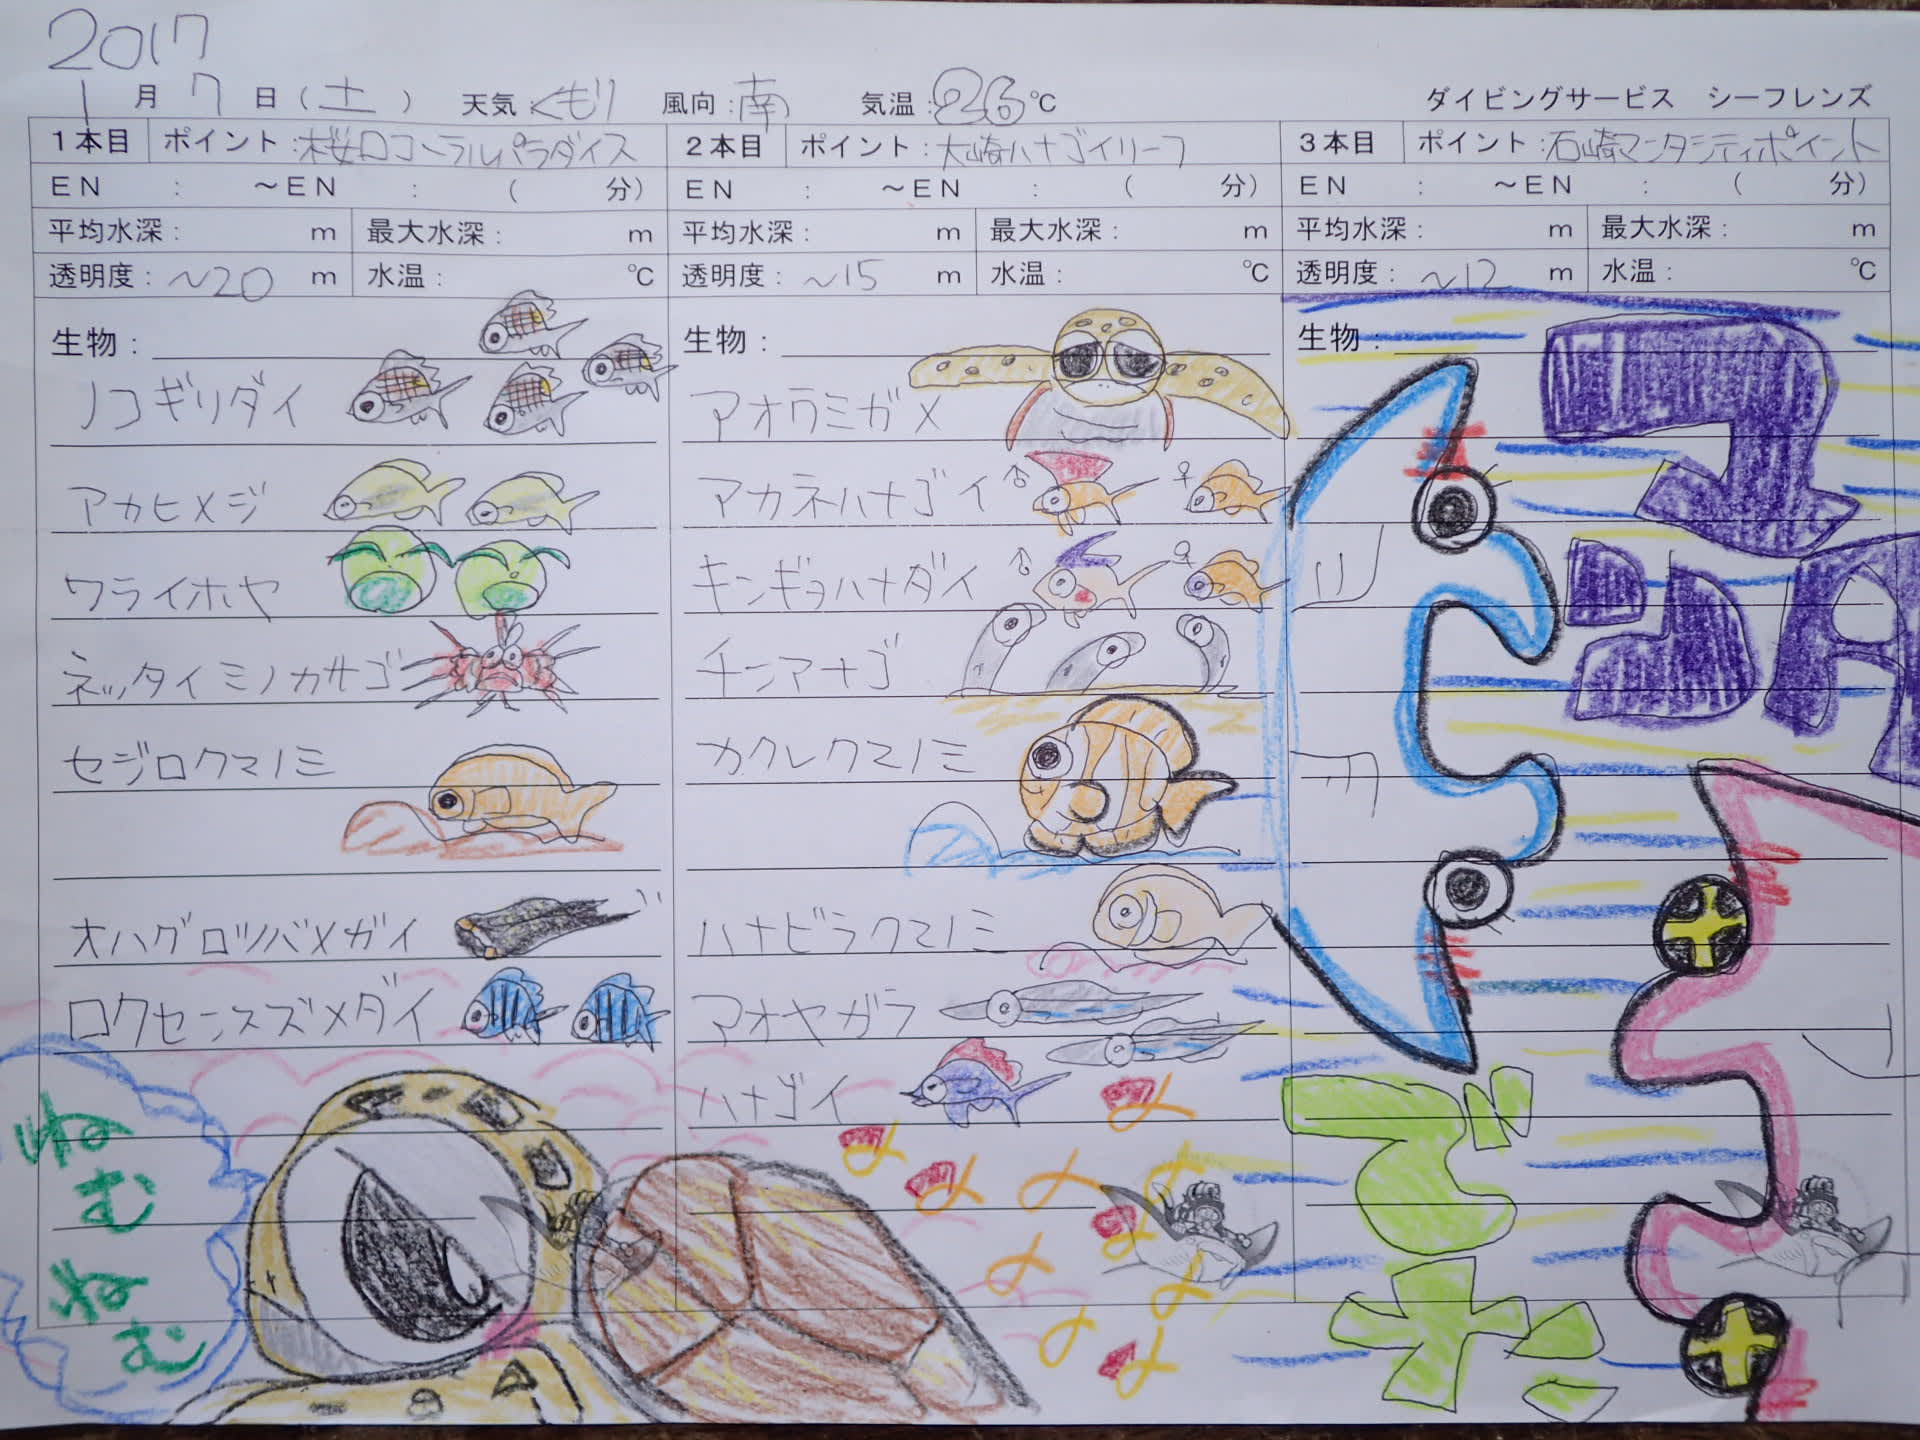 2017
1月7日(土) 天気:くもり 風向:南 気温:26℃ ダイビングサービス シーフレンズ
1本目 ポイント:桜口コーラルパラダイス
EN : ～EN : ( 分)
平均水深: m 最大水深: m
透明度:～20 m 水温: ℃
生物:
ノコギリダイ
アカヒメジ
ワライホヤ
ネッタイミノカサゴ
セジロクマノミ
オハグロツバメガイ
ロクセンスズメダイ
ねむ
ねむ
2本目 ポイント:大崎ハナゴイリーフ
EN : ～EN : ( 分)
平均水深: m 最大水深: m
透明度:～15 m 水温: ℃
生物:
アオウミガメ
アカネハナゴイ ♂ ♀
キンギョハナダイ ♂ ♀
チンアナゴ
カクレクマノミ
ハナビラクマノミ
アオヤガラ
ハナゴイ
3本目 ポイント:石崎マンタシティポイント
EN : ～EN : ( 分)
平均水深: m 最大水深: m
透明度:～12 m 水温: ℃
生物: